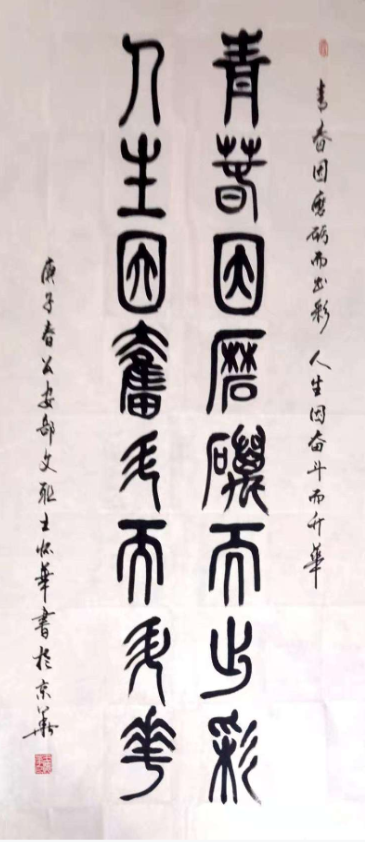 青春因磨砺而出彩 人生因奋斗而升華
青春因磨礪而出彩
人生因奮斗而升華
庚子春公安部文联王怀華書於京華